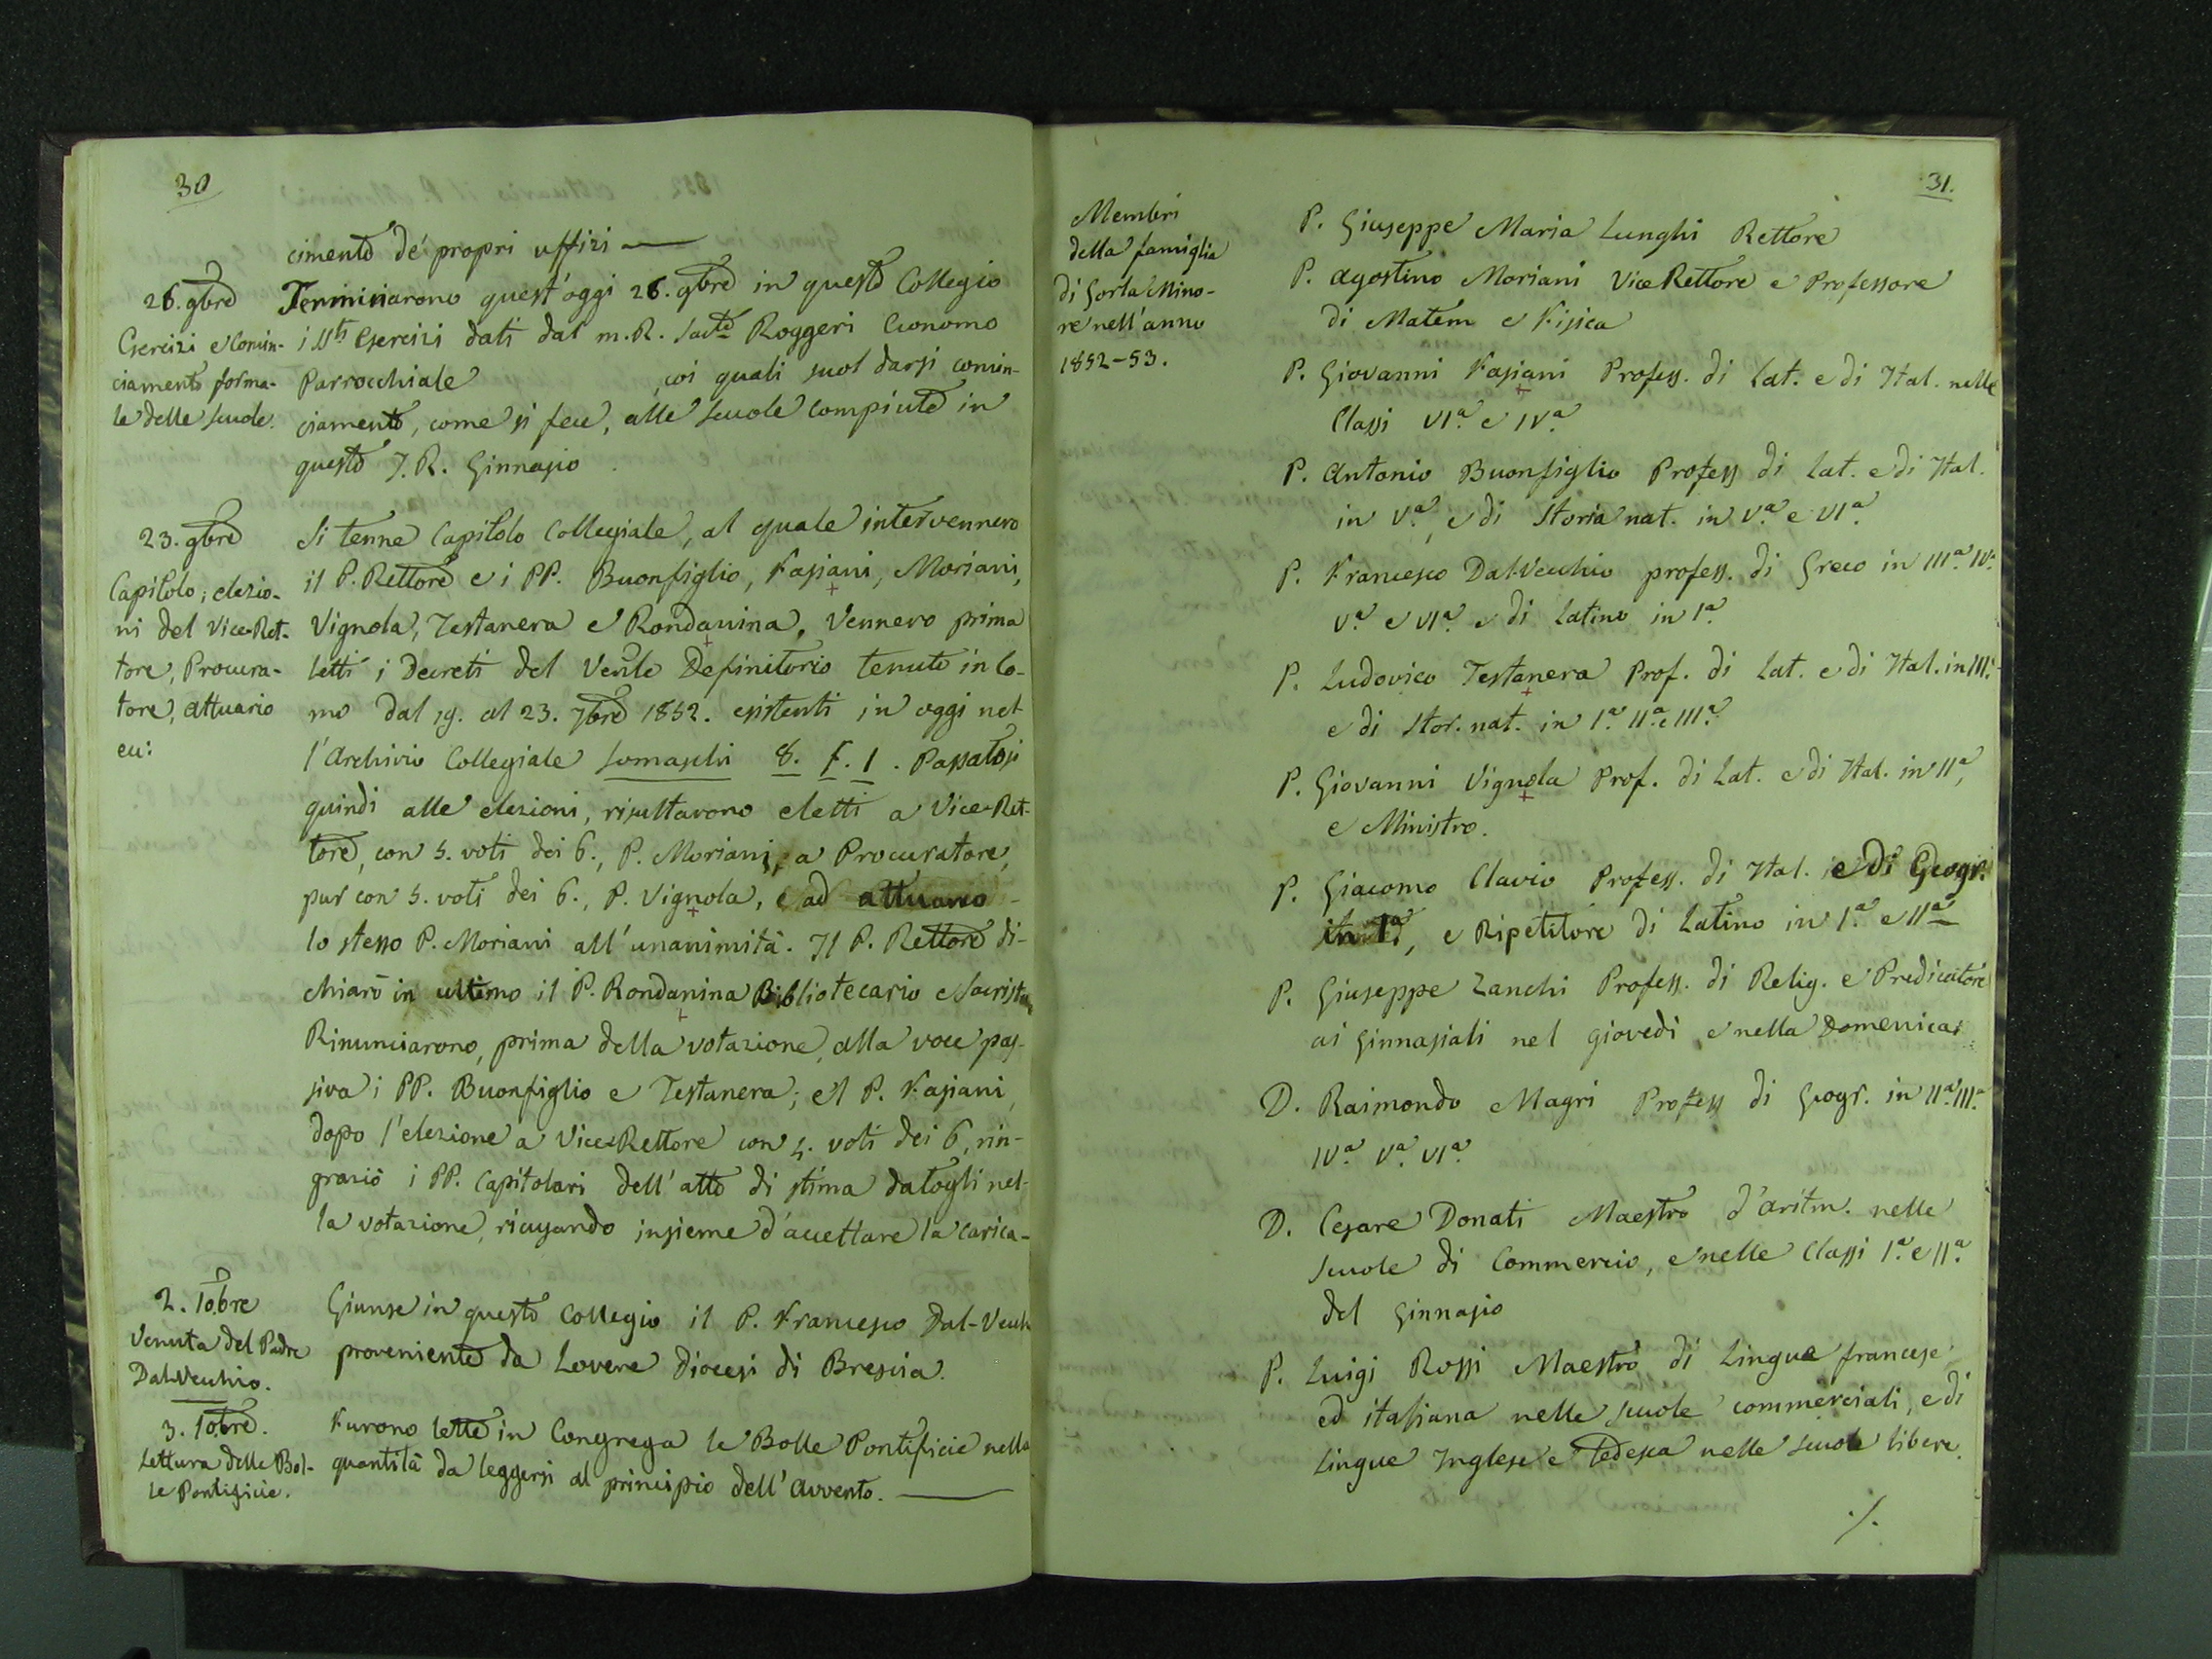 30
cimento de' propri uffizi —
26. 9bre
Esercizi e Comin-
ciamento forma-
le delle scuole.
Terminarono quest'oggi 26. 9bre in questo Collegio
i SSti Esercizi dati dal m. R. Sacte Roggeri Economo
Parrocchiale, coi quali suol darsi comin-
ciamento, come si fece, alle scuole compiute in
questo I. R. Ginnasio.
23. 9bre
Capitolo; elezio-
ni del Vice-Ret-
tore, Procura-
tore, attuario
ec:
Si tenne Capitolo Collegiale, al quale intervennero
il P. Rettore e i PP. Buonfiglio, Fasiani, Moriani,
Vignola, Testanera e Rondanina. Vennero prima
letti i Decreti del Venle Definitorio tenuto in Co-
mo dal 19. al 23. 7bre 1852. esistenti in oggi nel-
l'Archivio Collegiale Somaschi 8. f. 1. Passatosi
quindi alle elezioni, risultarono eletti a Vice-Ret-
tore, con 5. voti dei 6., P. Moriani, a Procuratore,
pur con 5. voti dei 6., P. Vignola, e ad attuario
lo stesso P. Moriani all'unanimità. Il P. Rettore di-
chiarò in ultimo il P. Rondanina Bibliotecario e Sacrista
Rinunciarono, prima della votazione, alla voce pas-
siva i PP. Buonfiglio e Testanera; el P. Fasiani,
dopo l'elezione a Vice-Rettore con 4. voti dei 6, rin-
graziò i PP. Capitolari dell'atto di stima datogli nel-
la votazione, ricusando insieme d'accettare la carica-
2. 10bre
Venuta del Padre
Dal-Vecchio.
Giunse in questo Collegio il P. Francesco Dal-Vecch
proveniente da Lovere Diocesi di Brescia.
3. 10bre.
Lettura delle Bol-
le Pontificie.
Furono lette in Congrega le Bolle Pontificie nella
quantità da leggersi al principio dell'Avvento. —
31.
Membri
della famiglia
di Gorla Mino-
re nell'anno
1852-53.
P. Giuseppe Maria Lunghi Rettore
P. Agostino Moriani Vice Rettore e Professore
di Matem e Fisica
P. Giovanni Fasiani Profess. di Lat. e di Ital. nelle
Classi VIa. e IVa.
P. Antonio Buonfiglio Profess di Lat. e di Ital.
in Va., e di Storia nat. in Va. e VIa.
P. Francesco Dal-Vecchio profess. di Greco in IIIa. IVa.
Va. e VIa. e di Latino in Ia.
P. Ludovico Testanera Prof. di Lat. e di Ital. in IIIa.
e di Stor. nat. in Ia. IIa. e IIIa.
P. Giovanni Vignola Prof. di Lat. e di Ital. in IIa,
e Ministro.
P. Giacomo Clavio Profess. di Ital. e di Geogr.
in Ia., e Ripetitore di Latino in Ia. e IIa
P. Giuseppe Zanchi Profess. di Relig. e Predicatore
ai Ginnasiali nel giovedì e nella Domenica.
D. Raimondo Magri Profess di Geogr. in IIa. IIIa.
IVa. Va. VIa.
D. Cesare Donati Maestro d'aritm. nelle
scuole di Commercio, e nelle Classi Ia. e IIa.
del Ginnasio
P. Luigi Rossi Maestro di Lingua francese
ed italiana nelle scuole commerciali, e di
Lingue Inglese e Tedesca nelle scuole libere.
./.